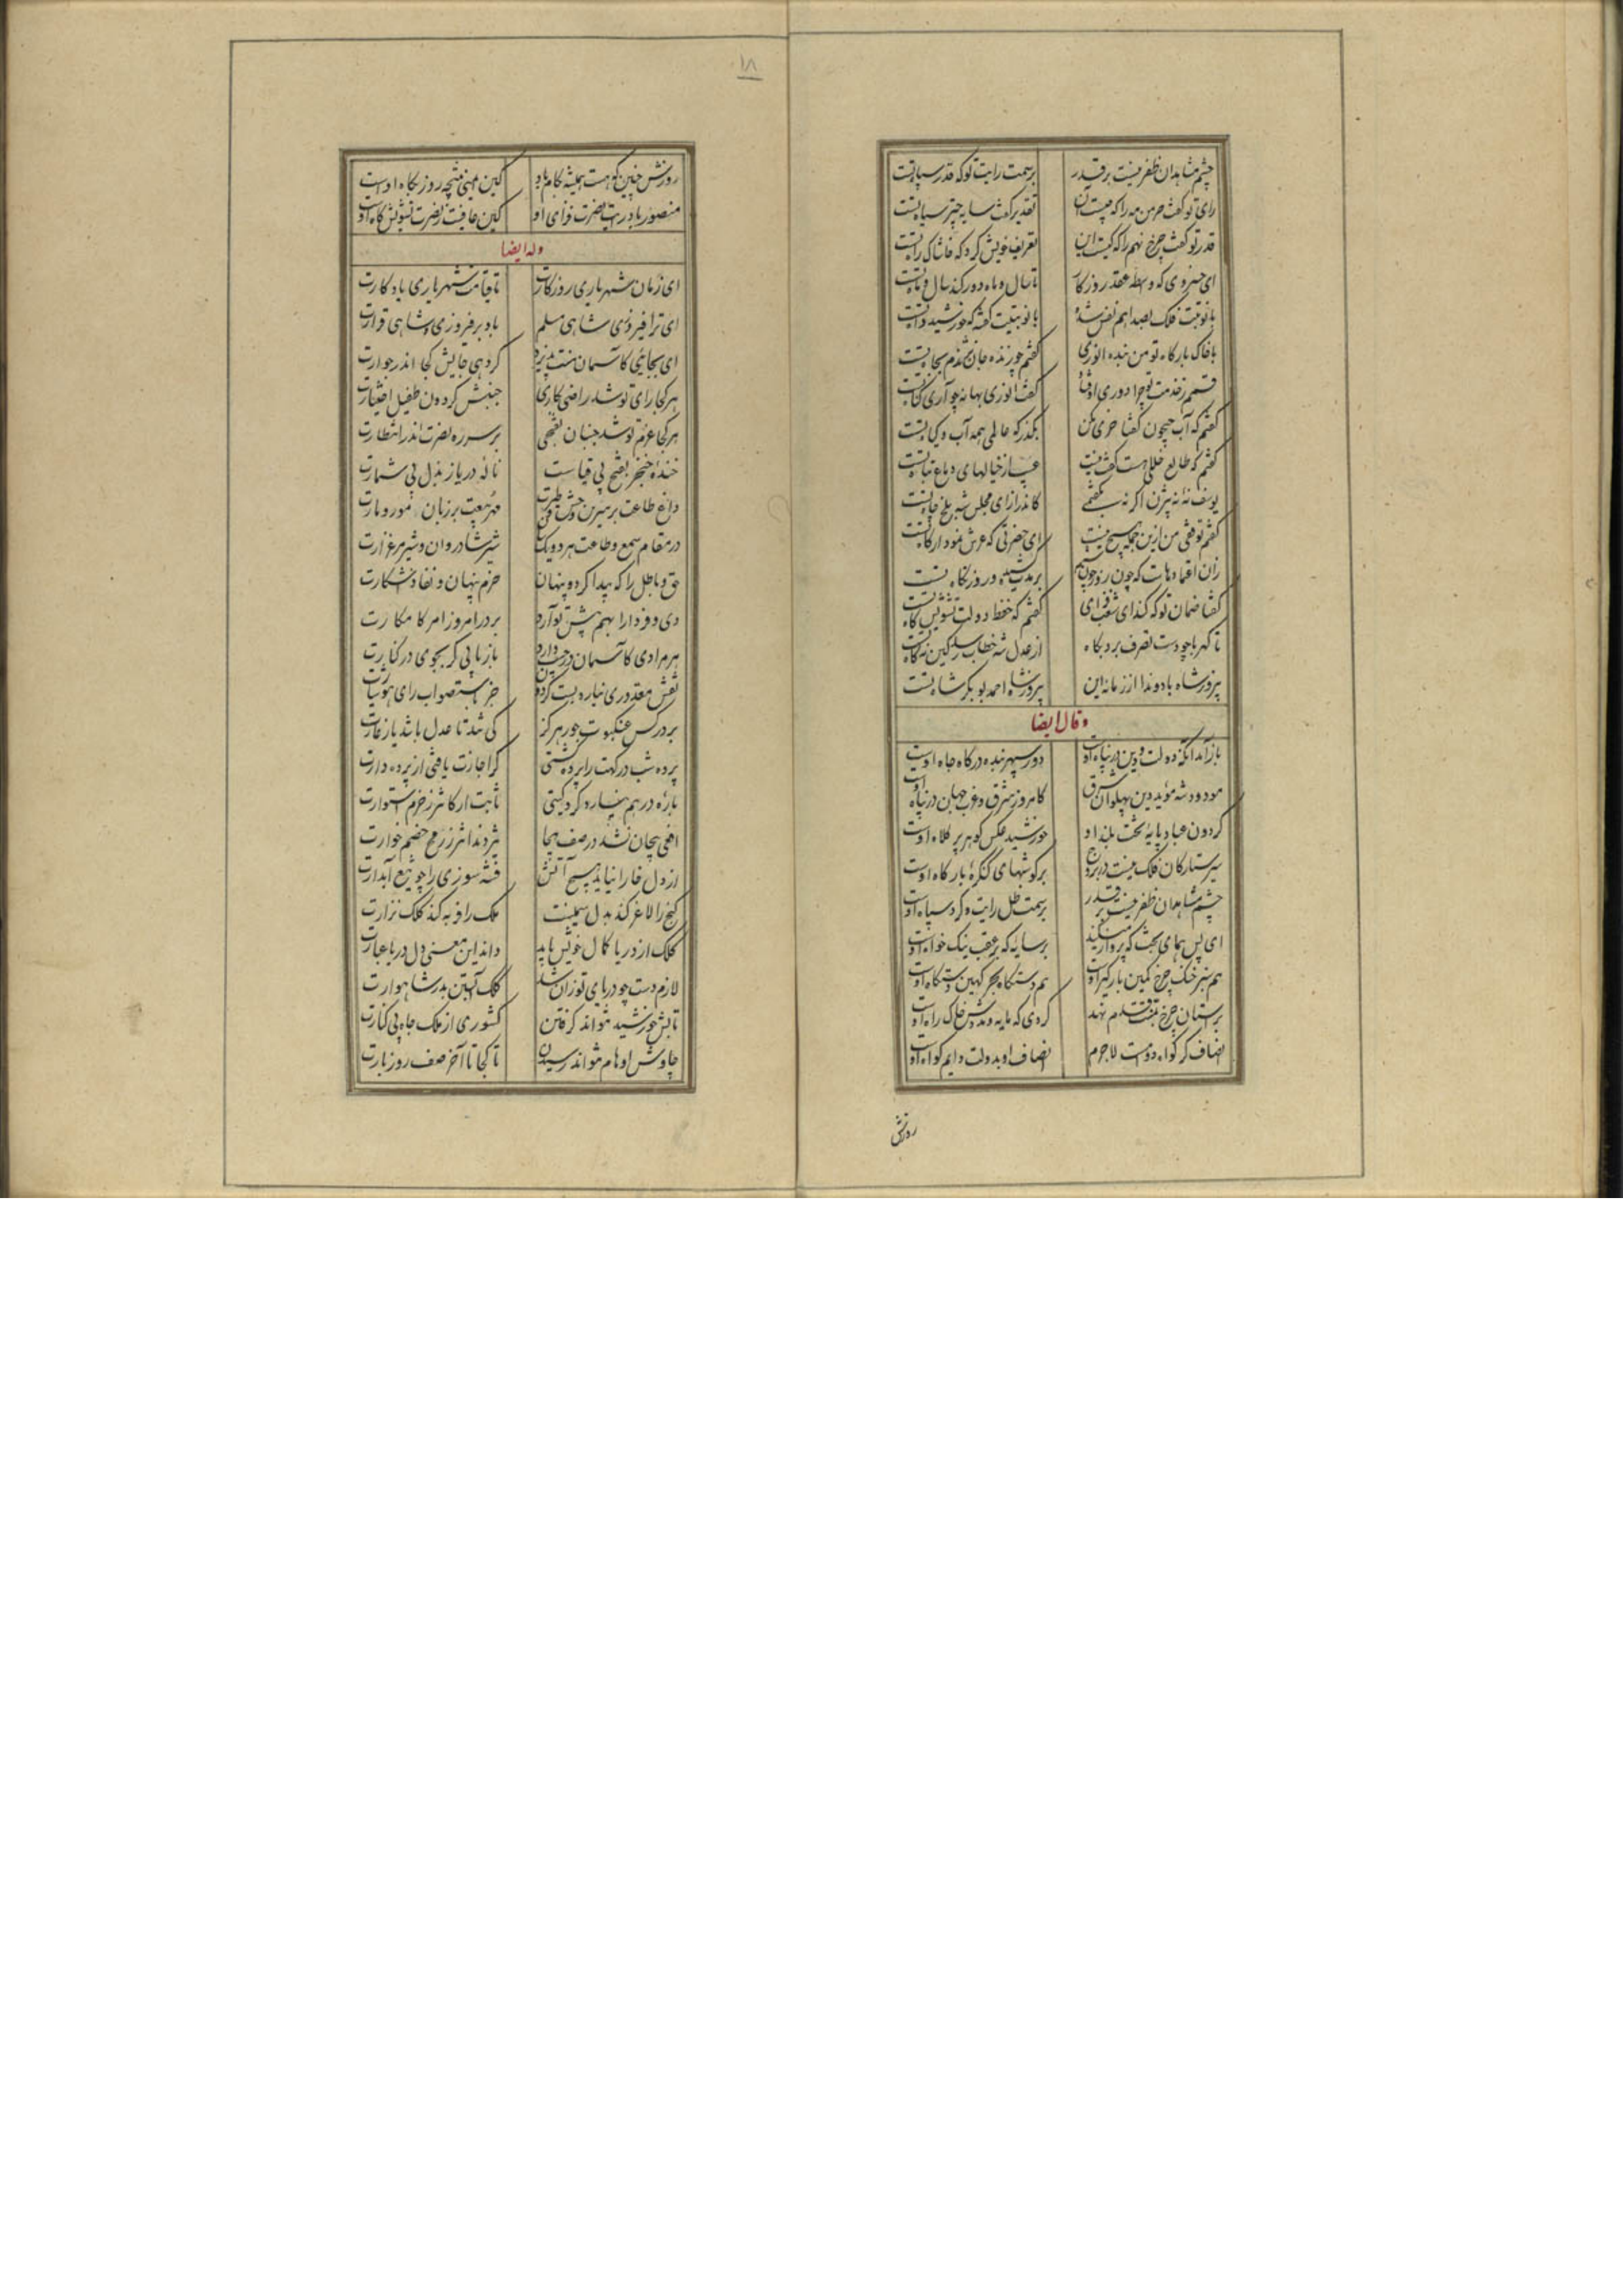 چشم مشاهدان ظفر نیست بر قدر
بر سمت رایت تو که قدر سپاه تست
رای تو گفت خرمن مه را که چیست آن
تقدیر گفت سایه چتر سیاه تست
قدر تو گفت چرخ نهم را که کیست این
تعریف خویش کرد که خاشاک راه تست
ای خسروی که واسطه عقد روزگار
تا سال و ماه دور کند سال و ماه تست
با نوبتت فلک بصدا هم نفس شده
با نوبتیت گفته که خورشید داه تست
با خاک بارگاه تو من بنده انوری
گفتم چو زنده جان نشدم بجاه تست
قسمم ز خدمت تو چرا دوری اوفتاد
گفت انوری بهانه چه آری گناه تست
گفتم که آب جیحون گفتا خری مکن
بگذر که عالمی همه آب و گیاه تست
گفتم که طالع خللی هست گفت نیست
عیب از خیالهای دماغ تباه تست
یوسف نه نه بیژن اگر نه بگفتمی
کاندر ازای مجلس شه بلخ چاه تست
گفتم توقفی من ازین جمله هیچ نیست
ای حضرتی که عرش نمودار گاه تست
گفتا ضمان تو که کند ای شغب فزای
گفتم که حفظ دولت تشویش کاه تست
تا کهربا چو دست تصرف برد بکاه
از عدل شه خطاب رسد کین نه کاه تست
پیروز شاه باد و ندا از زمانه این
پیروز شاه احمد بوبکر شاه تست
وقال ایضا
باز آمد آنکه دولت و دین در پناه اوست
دور سپهر بنده درگاه جاه اوست
مودود شه مؤید دین پهلوان شرق
کامروز شرق و غرب جهان در پناه اوست
گردون غبار پایه تخت بلند او
خورشید عکس گوهر پر کلاه اوست
سیر ستارگان فلک نیست در بروج
بر گوشهای کنگره بارگاه اوست
چشم مشاهدان ظفر نیست بر قدر
بر سمت ظل رایت و گرد سپاه اوست
ای بس همای بخت که پرواز میکند
بر سایه که بر عقب نیک خواه اوست
هم سبز خنگ چرخ کمین بارگیر اوست
هم دستگاه بحر کهین دستگاه اوست
بر آستان چرخ بمنت قدم نهد
گردی که مایه و مددش خاک راه اوست
انصاف گر گواه دوامست لاجرم
انصاف او بدولت دایم گواه اوست
روزش
۱۸
روزش چنین که هست همیشه بکام باد
کین ایمنی نتیجه روز بگاه اوست
منصور باد رایت نصرت فزای او
کین عافیت ز نصرت تشویش کاه اوست
وله ایضا
ای زمان شهریاری روزگارت
تا قیامت شهریاری باد کارت
ای ترا فیروزی و شاهی مسلم
باد بر فیروزی و شاهی قرارت
ای بجائی کاسمان منت پذیرد
گر دهی جایش کجا اندر جوارت
هر کجا رای تو شد راضی بکاری
جنبش گردون طفیل اختیارت
هر کجا عزم تو شد جنبان بفتحی
بر سر ره نصرت اندر انتظارت
خنده خنجر بفتح بی قیاست
ناله دریا ز بذل بی شمارت
داغ طاعت بر سرین وحش و طیرت
مهر بیعت بر زبان مور و مارت
در مقام سمع و طاعت هر دو یکسان
شیر شادروان و شیر مرغزارت
حق و باطل را که پیدا کرد و پنهان
حزم پنهان و نفاد آشکارت
دی و فردا را بهم پیش تو آرد
بر در امروز امر کامکارت
هر مرادی کاسمان در جیب دارد
باز یابی گر بجوی در کنارت
نقش مقدوری نیاره بست گردون
جز باستصواب رای هوشیارت
بر در کس عنکبوت جور هرگز
کی تند تا عدل باشد یار غارت
پرده شب درگهت را پرده گشتی
گر اجازت یافتی از پرده دارت
باره در هم نیاره کرد گیتی
ثابت ارکانتر ز حزم استوارت
افعی پیچان نشد در صف هیجا
پر گزندانتر ز رمح خصم خوارت
از دل خارا نیاید هیچ آتش
فتنه سوزی را چو تیغ آبدارت
گنج را لاغر کند بذل سمینت
ملک را فربه کند کلک نزارت
کلک از دریا کمال خویش یابد
داند این معنی دل دریا عیارت
لازم دست چو دریای تو زان شد
کلک آبستن بدر شاهوارت
تابش خورشید نتواند گرفتن
کشوری از ملک جاه بی کنارت
چاوش اوهام نتواند رسیدن
تا کجا تا آخر صف روز بارت